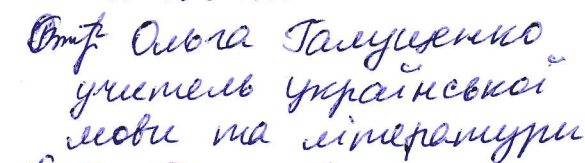 Ольга Галущенко
учитель української
мови та літератури